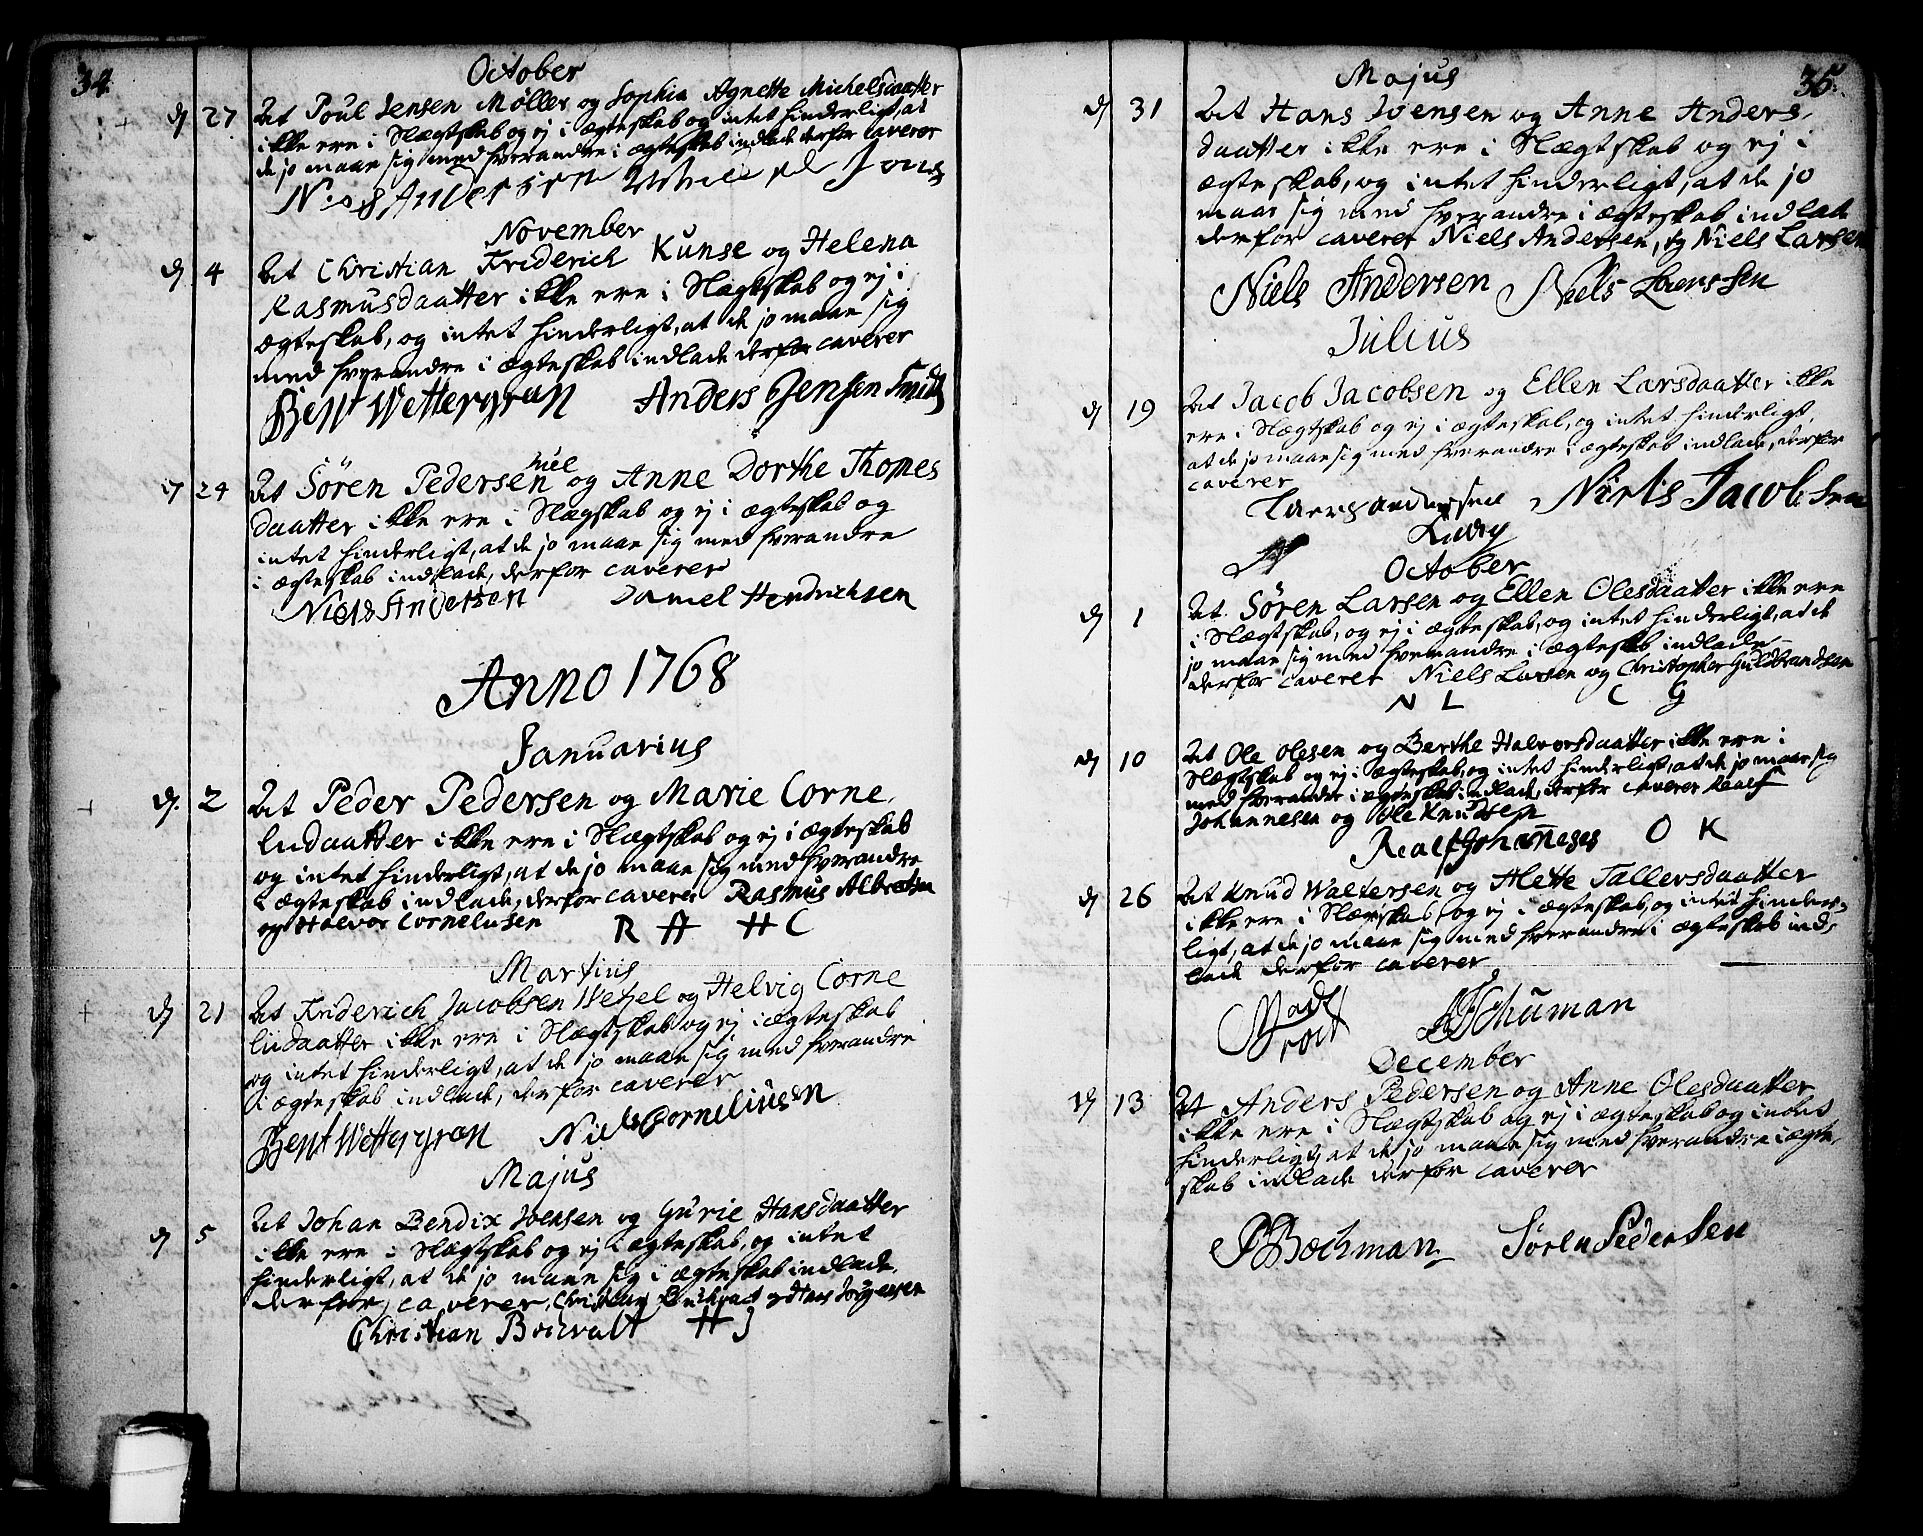 34.
October
d 27 At Poul Jensen Møller og Sophia Agnette Michelsdaatter
ikke ere i Slægtskab og ej i ægteskab og intet hinderligt, at
de jo maae sig med hverandre i ægteskab indlade derfor caverer
Niels Andersen
November
d 4 At Christian Friderich Kunse og Helena
Rasmusdaatter ikke ere i Slægtskab og ej i
ægteskab, og intet hinderligt, at de jo maae sig
med hverandre i ægteskab indlade derfor caverer
Bent Wettergran Anders Jensen Smidt
d 24 At Sören Pedersen Juel og Anne Dorthe Thomes
daatter ikke ere i Slægskab og ej i ægteskab og
intet hinderligt, at de jo maae sig med hverandre
i ægteskab indlade, derfor caverer
Niels Andersen Daniel Hendrichsen
Anno 1768
Januarius
d. 2 At Peder Pedersen og Marie Corne,
liidaatter ikke ere i Slægtskab og ej i ægteskab
og intet hinderligt, at de jo maae sig med hverandre
i ægteskab indlade, derfor caverer Rasmus Albretsen
og Halvor Corneliusen R A H C
Martius
d 21 At Friderich Jacobsen Wetzel og Helvig Corne
liidaatter ikke ere i Slægtskab og ej i ægteskab
og intet hinderligt, at de jo maae sig med hverandre
i ægteskab indlade, derfor caverer
Bent Wettergran Niels Corneliusen
Majus
d 5 At Johan Bendix Joensen og Gurie Hansdaatter
ikke ere i Slægtskab og ej i ægteskab, og intet
hinderligt, at de jo maae sig i ægteskab indlade,
derfor, caverer, Christian og Hans Jörgensen
Christian H J
35.
Majus
d 31 At Hans Joensen og Anne Anders,
daatter ikke ere i Slægtskab og ej i
ægteskab, og intet hinderligt, at de jo
maae sig med hverandre i ægteskab indlade
derfor caverer Niels Andersen, og Niels Larsen
Niels Andersen Niels Laerssen
Julius
d 19 At Jacob Jacobsen og Ellen Larsdaatter ikke
ere i Slægtskab og ej i ægteskab, og intet hinderligt,
at de jo maae sig med hverandre i ægteskab indlade, derfor
caverer
Laers Anderssen Niels Jacobsen
October
d 1 At Sören Larsen og Ellen Olesdaatter ikke ere
i Slægtskab, og ej i ægteskab, og intet hinderligt, at de
jo maae sig med hverandre i ægteskab indlade
derfor caverer Niels Larsen og Christopher Guldbrandsen
N L C G
d 10 At Ole Olesen og Berthe Halvorsdaatter ikke ere i
Slægtskab og ej i ægteskab, og intet hinderligt, at de jo maae sig
med hverandre i ægteskab indlade, derfor caverer Realf
Johannesen og Ole Knudsen
Realf Johanneses O K
d 26 At Knud Waltersen og Alette Tallersdaatter
ikke ere i Slægskab, og ej i ægteskab, og intet hinder,
ligt, at de jo maae sig med hverandre i ægteskab ind,
lade derfor caverer
Schuman
December
d 13 At Anders Pedersen og Anne Olesdaatter
ikke ere i Slægtskab og ej i ægteskab og indet
hinderligt, at de jo maae sig med hverandre i ægte,
skab indlade derfor caverer
P Bochman Sören Pedersen